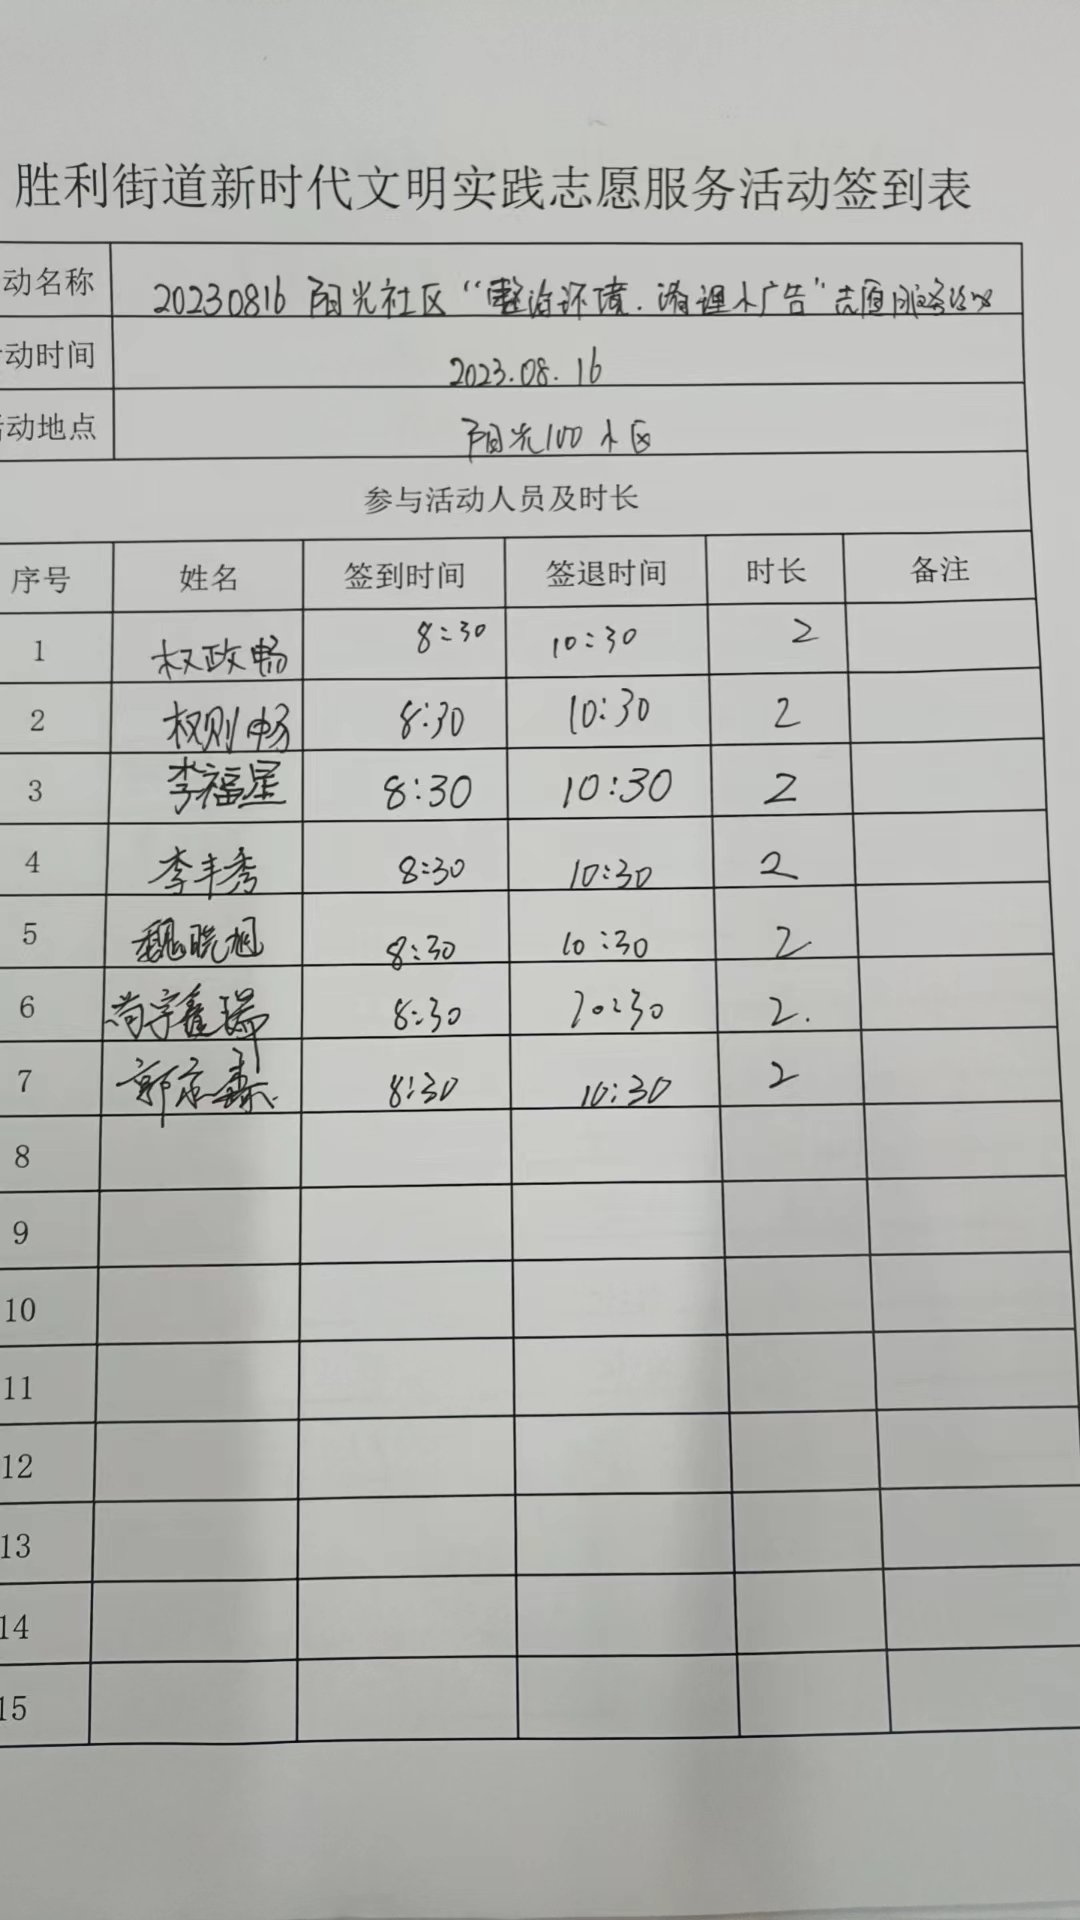 胜利街道新时代文明实践志愿服务活动签到表
动名称 20230816 阳光社区“整治环境.清理小广告”志愿服务活动
动时间 2023.08.16
活动地点 阳光100小区
参与活动人员及时长
序号 姓名 签到时间 签退时间 时长 备注
1 权政畅 8:30 10:30 2
2 权则畅 8:30 10:30 2
3 李福星 8:30 10:30 2
4 李丰秀 8:30 10:30 2
5 魏晓旭 8:30 10:30 2
6 尚宇鑫瑞 8:30 10:30 2.
7 郭京森 8:30 10:30 2
8
9
10
11
12
13
14
15